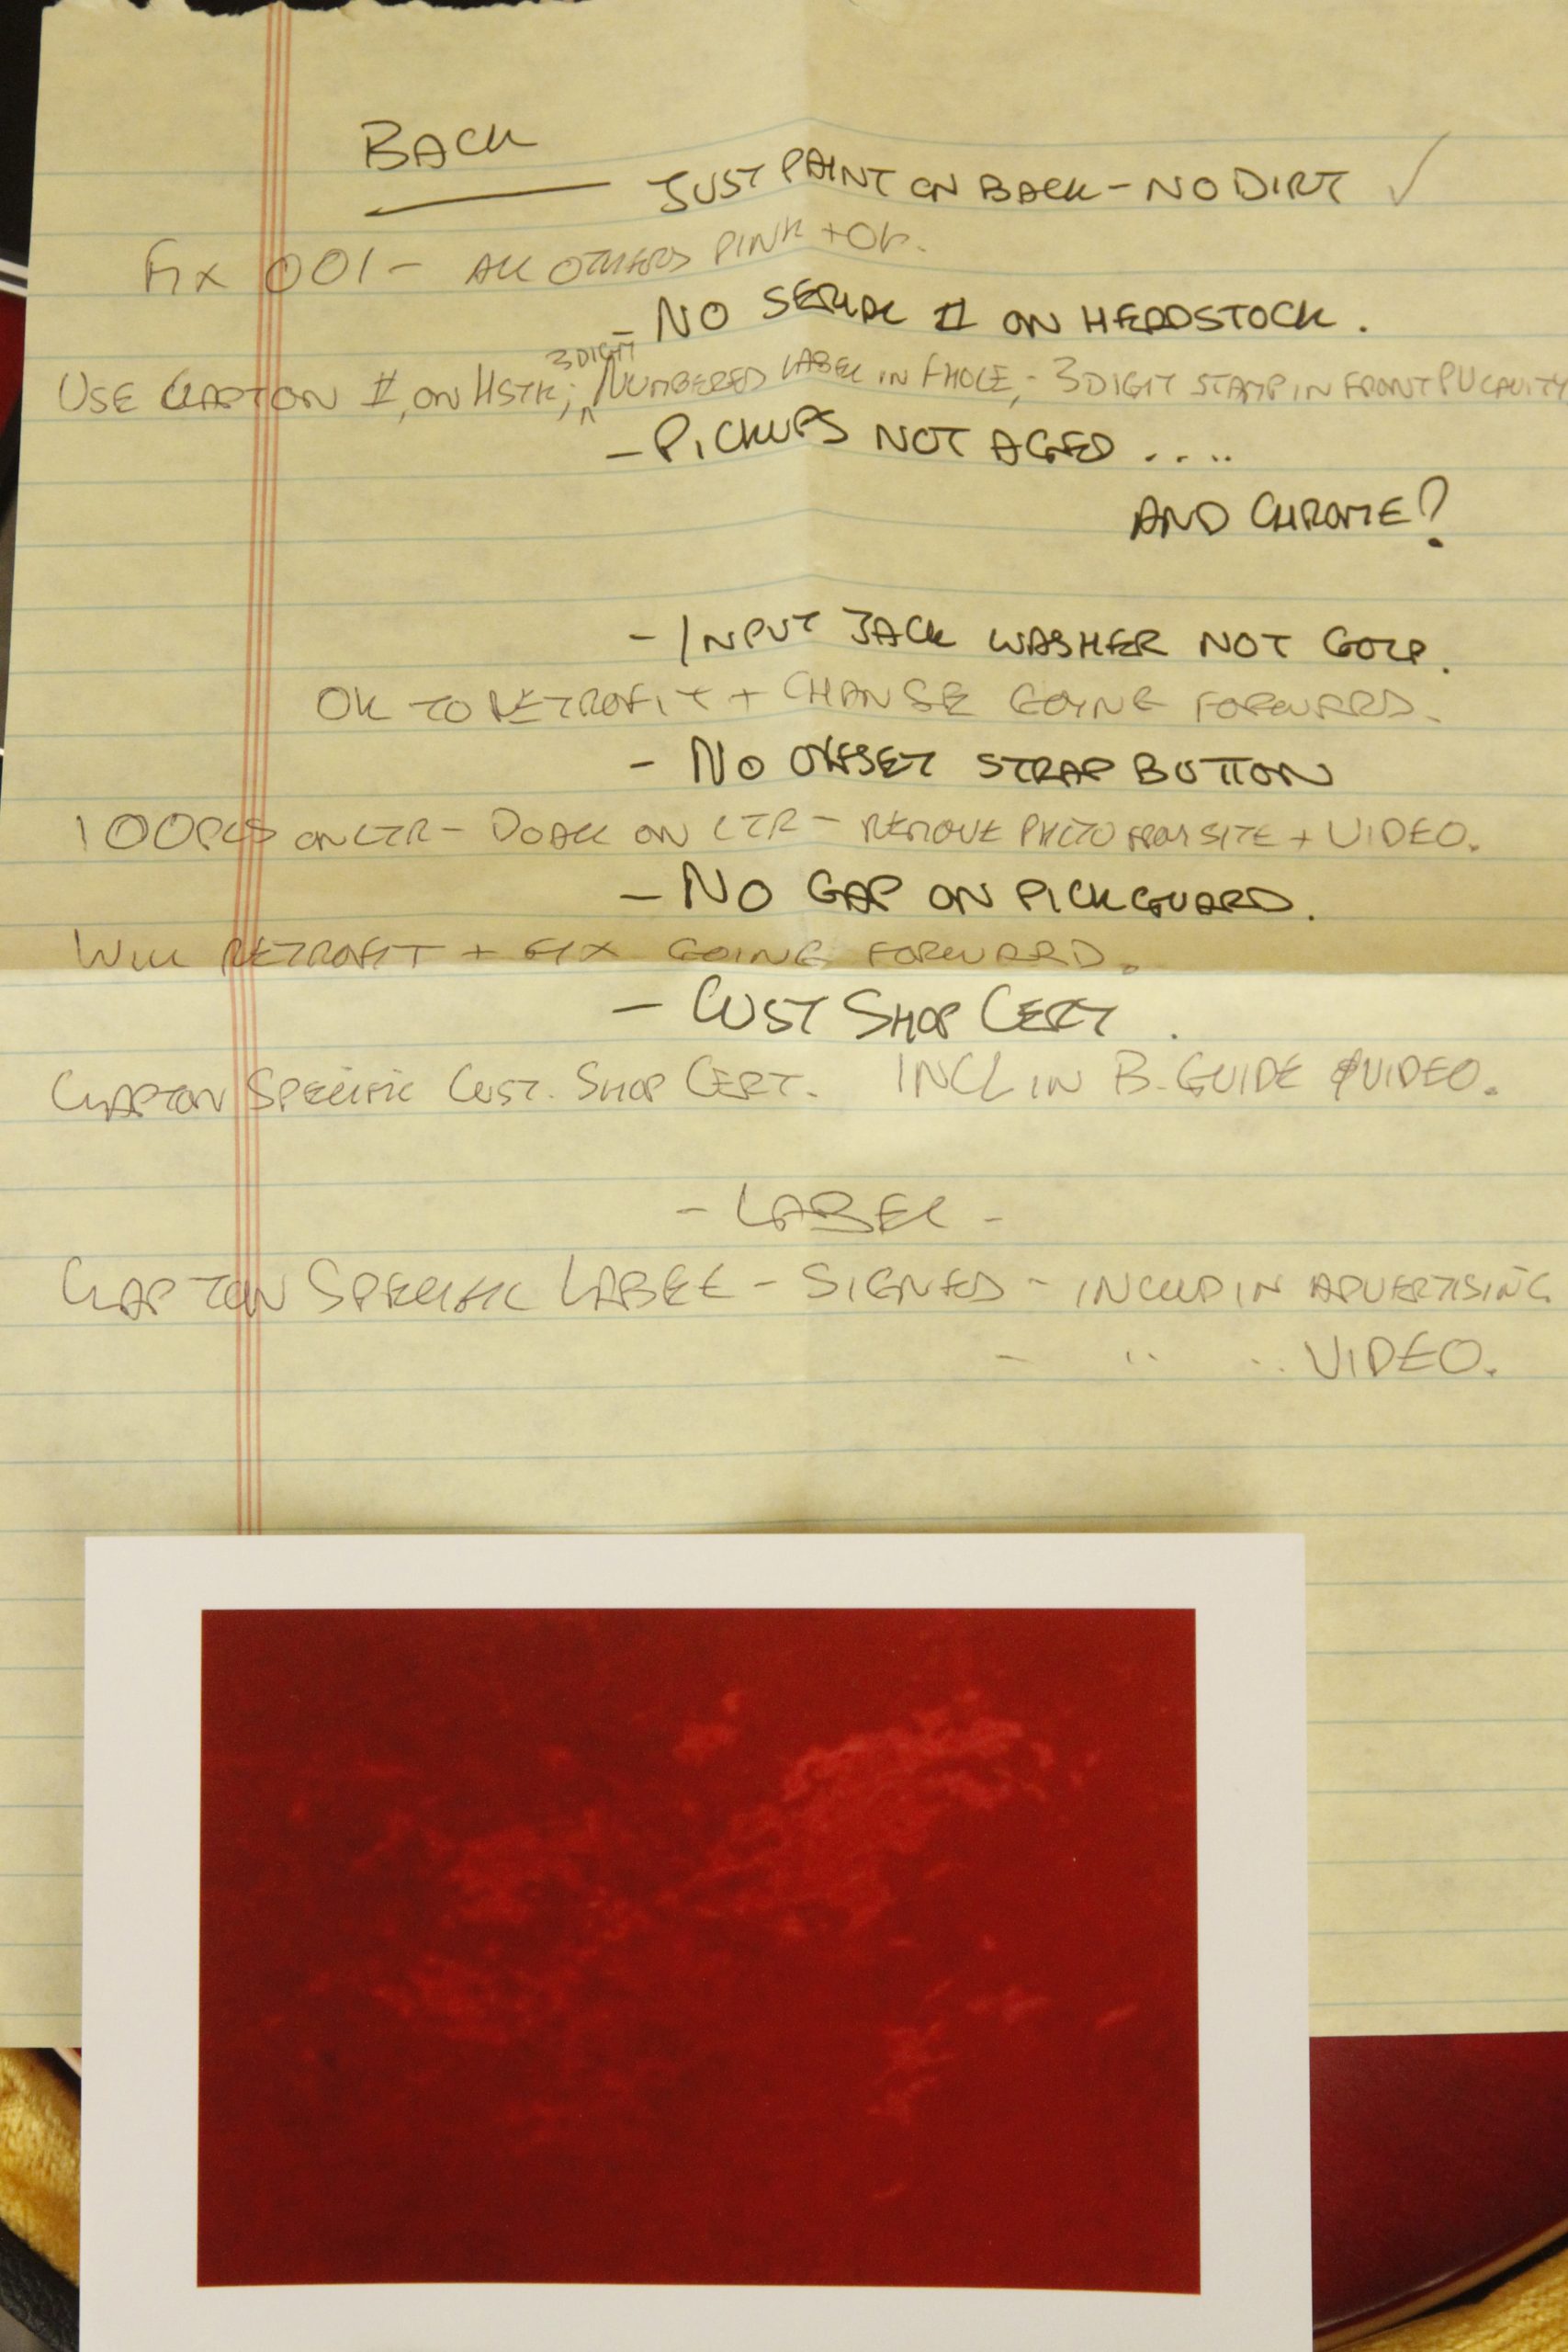 BACK
JUST PAINT ON BACK - NO DIRT ✓
FIX 001 - ALL OTHERS PINK + OK.
- NO SERIAL # ON HEADSTOCK.
3 DIGIT
USE CLAPTON #, ON HSTK; ^ NUMBERED LABEL IN FHOLE, - 3 DIGIT STAMP IN FRONT PU CAVITY
- PICKUPS NOT AGED ....
AND CHROME?
- INPUT JACK WASHER NOT GOLD.
OK TO RETROFIT + CHANGE GOING FORWARD.
- NO OFFSET STRAP BUTTON
100PCS ON CTR - DO ALL ON CTR - REMOVE PHOTO FROM SITE + VIDEO.
- NO GAP ON PICKGUARD.
WILL RETROFIT + FIX GOING FORWARD.
- CUST SHOP CERT.
CLAPTON SPECIFIC CUST. SHOP CERT. INCL IN B. GUIDE & VIDEO.
- LABEL -
CLAPTON SPECIFIC LABEL - SIGNED - INCLUD IN ADVERTISING
- " " VIDEO.